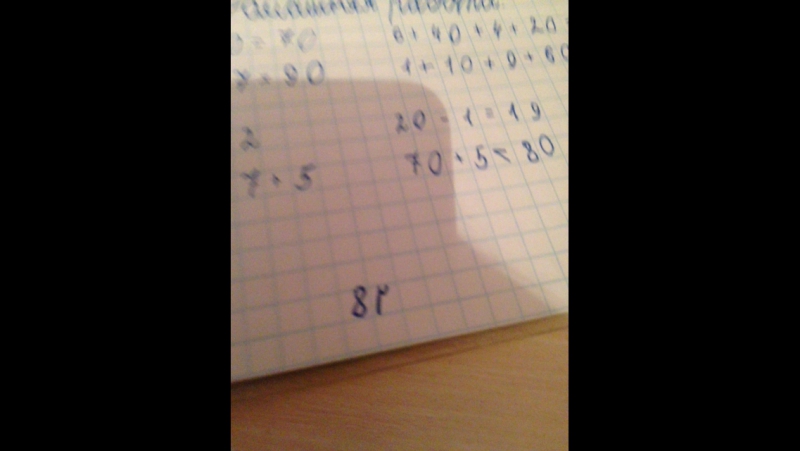 работа.
0 = 70
6 + 40 + 4 + 20 =
7 = 90
1 + 10 + 9 + 60
2
20 - 1 = 19
7 + 5
70 + 5 < 80
81